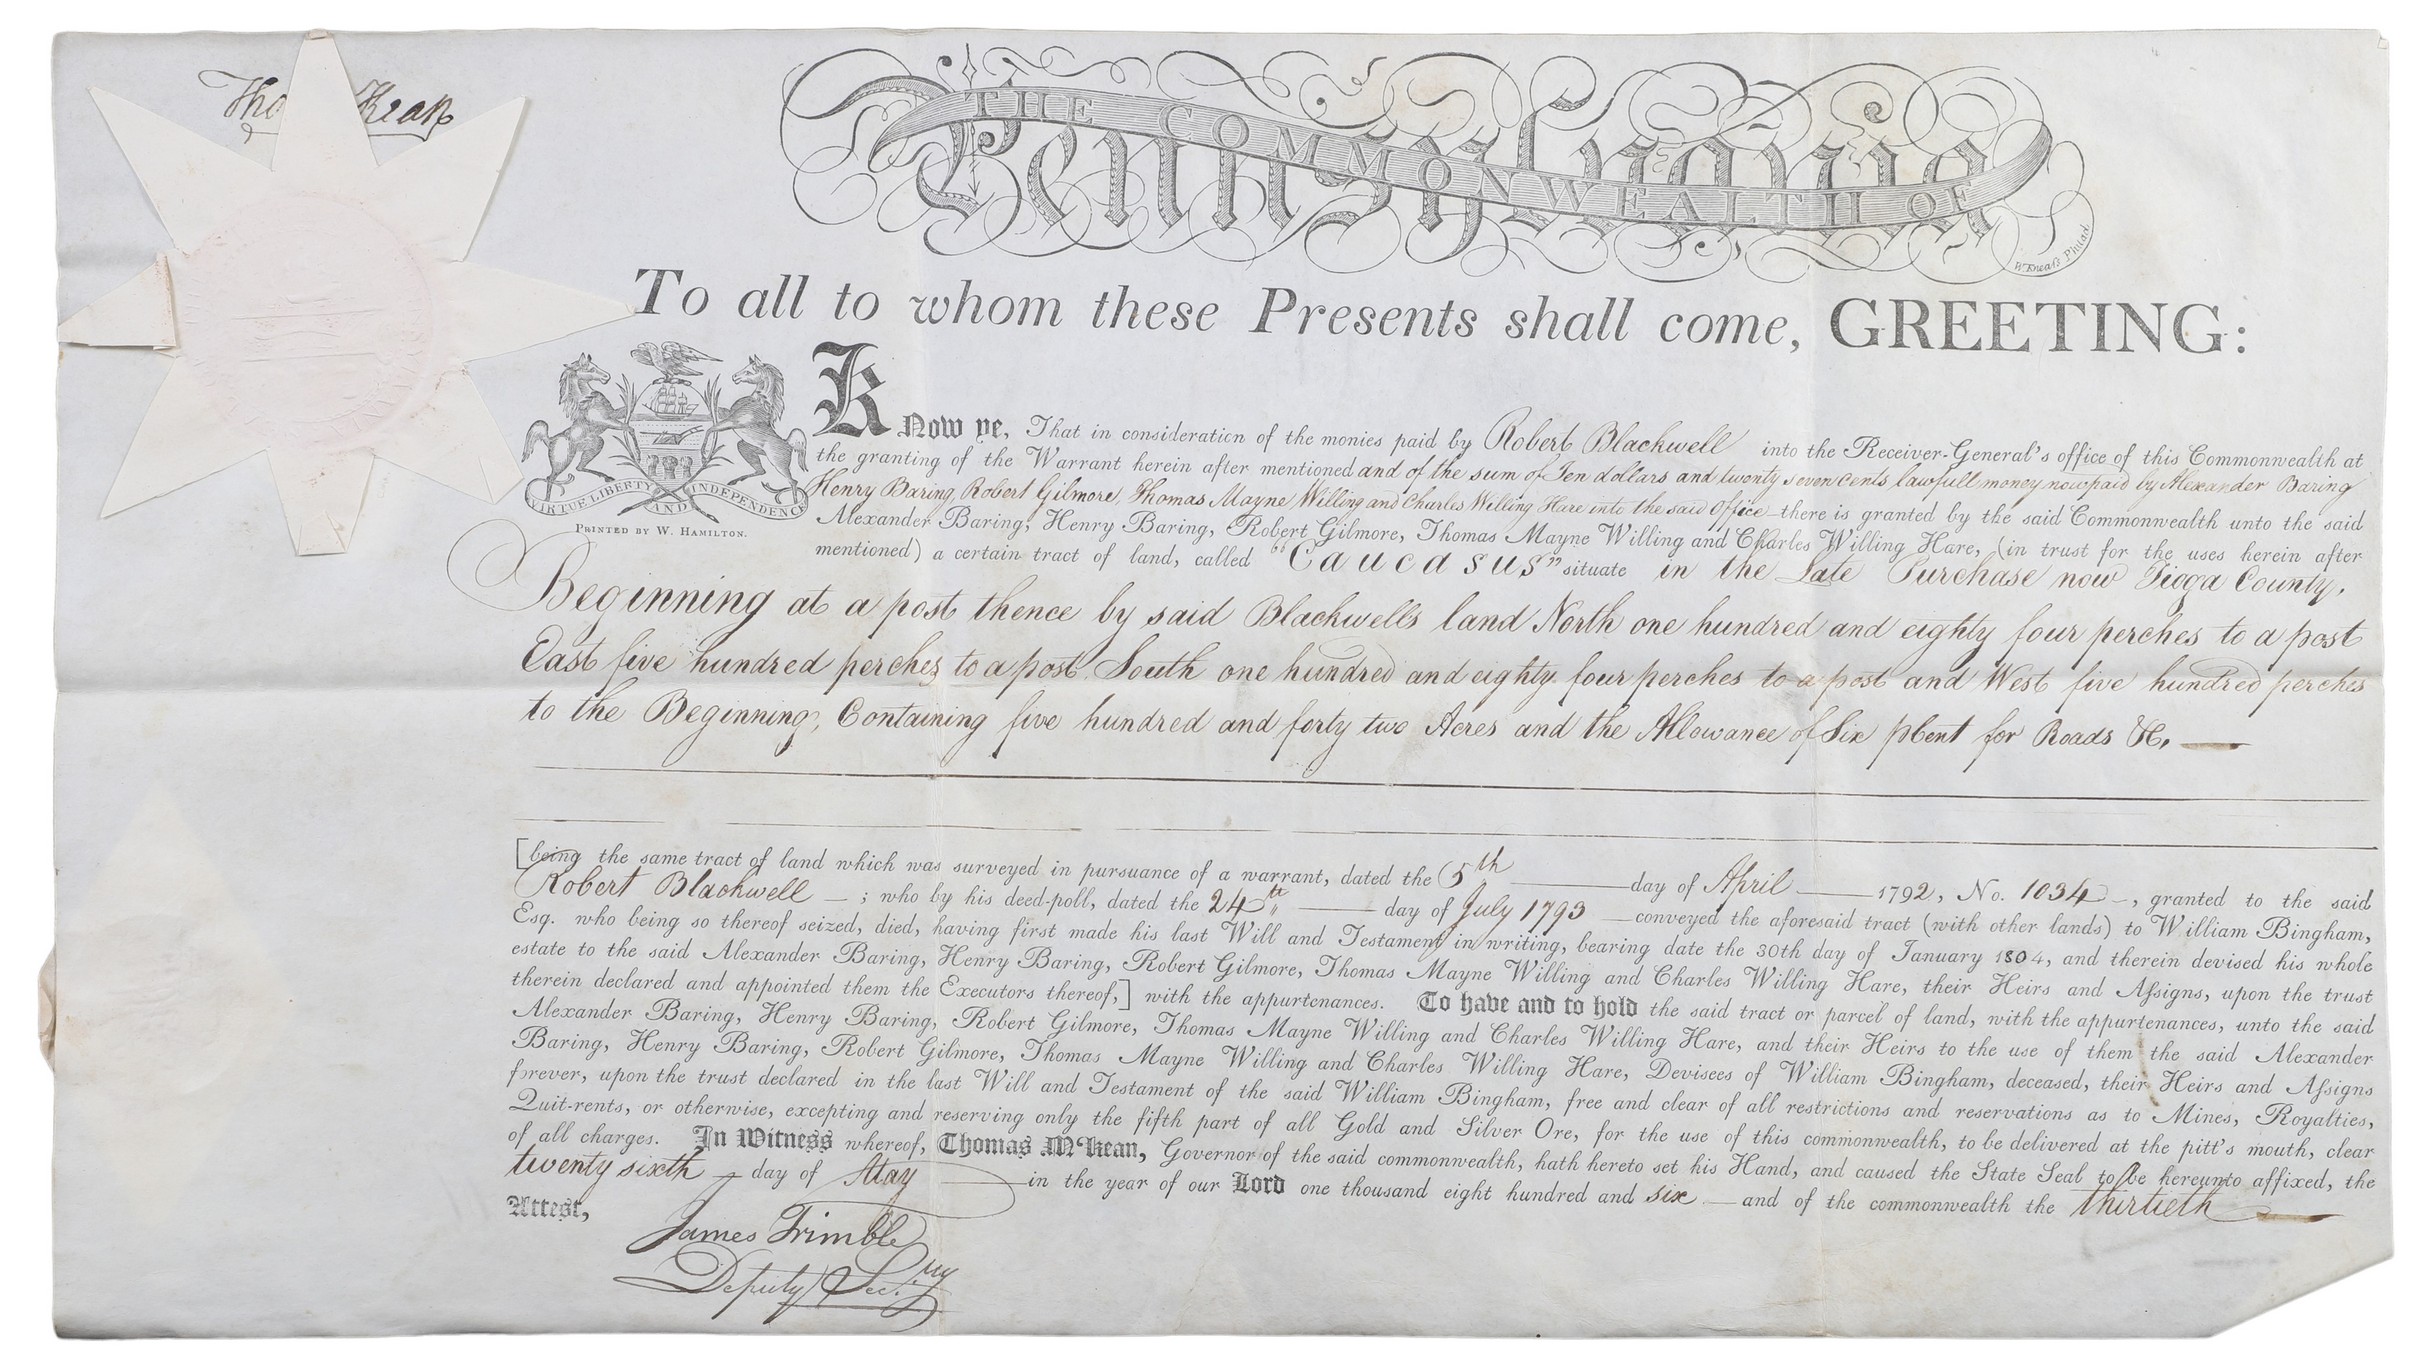 Tho Kean
THE COMMONWEALTH OF
Pennsylvania
W Kneass Philad
To all to whom these Presents shall come, GREETING:
VIRTUE LIBERTY AND INDEPENDENCE
PRINTED BY W. HAMILTON.
KNow ye, That in consideration of the monies paid by Robert Blackwell into the Receiver-General's office of this Commonwealth at
the granting of the Warrant herein after mentioned and of the sum of Ten dollars and twenty seven cents lawfull money now paid by Alexander Baring
Henry Baring, Robert Gilmore, Thomas Mayne Willing and Charles Willing Hare into the said Office there is granted by the said Commonwealth unto the said
Alexander Baring, Henry Baring, Robert Gilmore, Thomas Mayne Willing and Charles Willing Hare, (in trust for the uses herein after
mentioned) a certain tract of land, called "Caucasus" situate in the Late Purchase now Tioga County,
Beginning at a post thence by said Blackwells land North one hundred and eighty four perches to a post
East five hundred perches to a post South one hundred and eighty four perches to a post and West five hundred perches
to the Beginning, Containing five hundred and forty two Acres and the Allowance of Six pCent for Roads &c,
[being the same tract of land which was surveyed in pursuance of a warrant, dated the 5th day of April 1792, No. 1034, granted to the said
Robert Blackwell ; who by his deed-poll, dated the 24th day of July 1793 conveyed the aforesaid tract (with other lands) to William Bingham,
Esq. who being so thereof seized, died, having first made his last Will and Testament in writing, bearing date the 30th day of January 1804, and therein devised his whole
estate to the said Alexander Baring, Henry Baring, Robert Gilmore, Thomas Mayne Willing and Charles Willing Hare, their Heirs and Assigns, upon the trust
therein declared and appointed them the Executors thereof,] with the appurtenances. To have and to hold the said tract or parcel of land, with the appurtenances, unto the said
Alexander Baring, Henry Baring, Robert Gilmore, Thomas Mayne Willing and Charles Willing Hare, and their Heirs to the use of them the said Alexander
Baring, Henry Baring, Robert Gilmore, Thomas Mayne Willing and Charles Willing Hare, Devisees of William Bingham, deceased, their Heirs and Assigns
forever, upon the trust declared in the last Will and Testament of the said William Bingham, free and clear of all restrictions and reservations as to Mines, Royalties,
Quit-rents, or otherwise, excepting and reserving only the fifth part of all Gold and Silver Ore, for the use of this commonwealth, to be delivered at the pitt's mouth, clear
of all charges. In Witness whereof, Thomas M'Kean, Governor of the said commonwealth, hath hereto set his Hand, and caused the State Seal to be hereunto affixed, the
twenty sixth day of May in the year of our Lord one thousand eight hundred and six and of the commonwealth the thirtieth
Attest,
James Trimble
Deputy Sec.ry